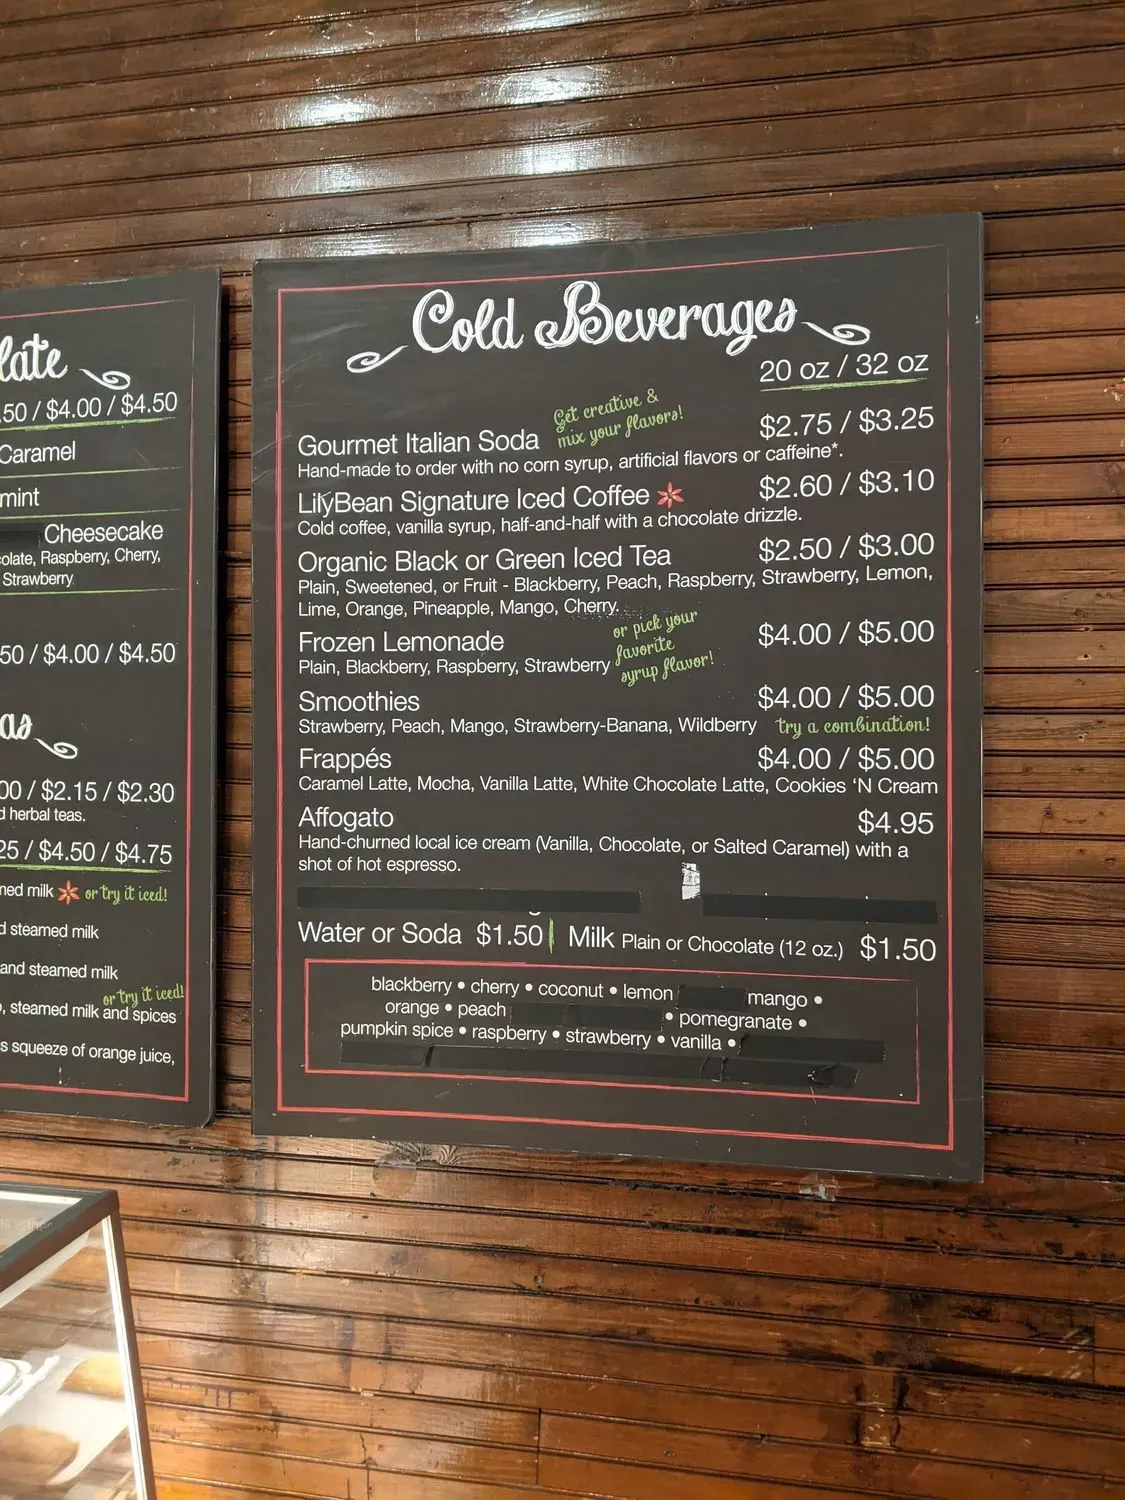 late
.50 / $4.00 / $4.50
Caramel
mint
Cheesecake
olate, Raspberry, Cherry,
Strawberry
50 / $4.00 / $4.50
as
00 / $2.15 / $2.30
d herbal teas.
25 / $4.50 / $4.75
med milk or try it iced!
d steamed milk
and steamed milk
or try it iced!
o, steamed milk and spices
s squeeze of orange juice,
Cold Beverages
20 oz / 32 oz
Get creative &
mix your flavors!
Gourmet Italian Soda $2.75 / $3.25
Hand-made to order with no corn syrup, artificial flavors or caffeine*.
LilyBean Signature Iced Coffee $2.60 / $3.10
Cold coffee, vanilla syrup, half-and-half with a chocolate drizzle.
Organic Black or Green Iced Tea $2.50 / $3.00
Plain, Sweetened, or Fruit - Blackberry, Peach, Raspberry, Strawberry, Lemon,
Lime, Orange, Pineapple, Mango, Cherry.
Frozen Lemonade $4.00 / $5.00
Plain, Blackberry, Raspberry, Strawberry
or pick your
favorite
syrup flavor!
Smoothies $4.00 / $5.00
Strawberry, Peach, Mango, Strawberry-Banana, Wildberry try a combination!
Frappés $4.00 / $5.00
Caramel Latte, Mocha, Vanilla Latte, White Chocolate Latte, Cookies 'N Cream
Affogato $4.95
Hand-churned local ice cream (Vanilla, Chocolate, or Salted Caramel) with a
shot of hot espresso.
Water or Soda $1.50 Milk Plain or Chocolate (12 oz.) $1.50
blackberry • cherry • coconut • lemon mango •
orange • peach • pomegranate •
pumpkin spice • raspberry • strawberry • vanilla •